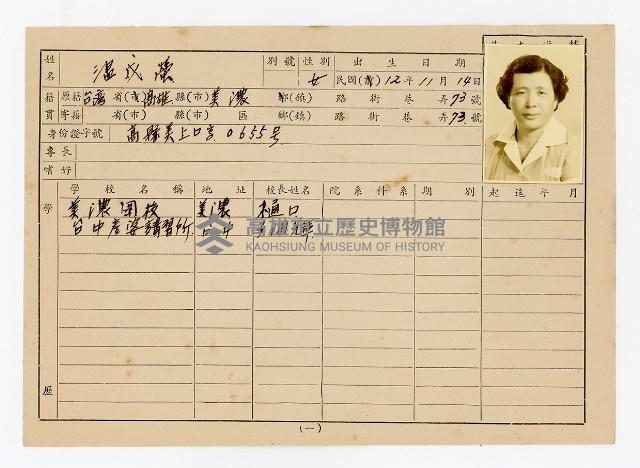 姓名 温成榮 別號 性別 女 出生日期 民國(前) 12年 11月 14日
籍貫 原籍 台灣省(市) 高雄縣(市) 美濃鄉(鎮) 路 街 巷 弄 73號
寄籍 省(市) 縣(市) 區 鄉(鎮) 路 街 巷 弄 73號
身份證字號 高縣美上口字 0655号
專長
嗜好
學歷 學校名稱 地址 校長姓名 院系科系 期別 起迄年月
美濃國校 美濃 樋口
台中產婆講習所 台中
高雄市立歷史博物館
KAOHSIUNG MUSEUM OF HISTORY
(一)